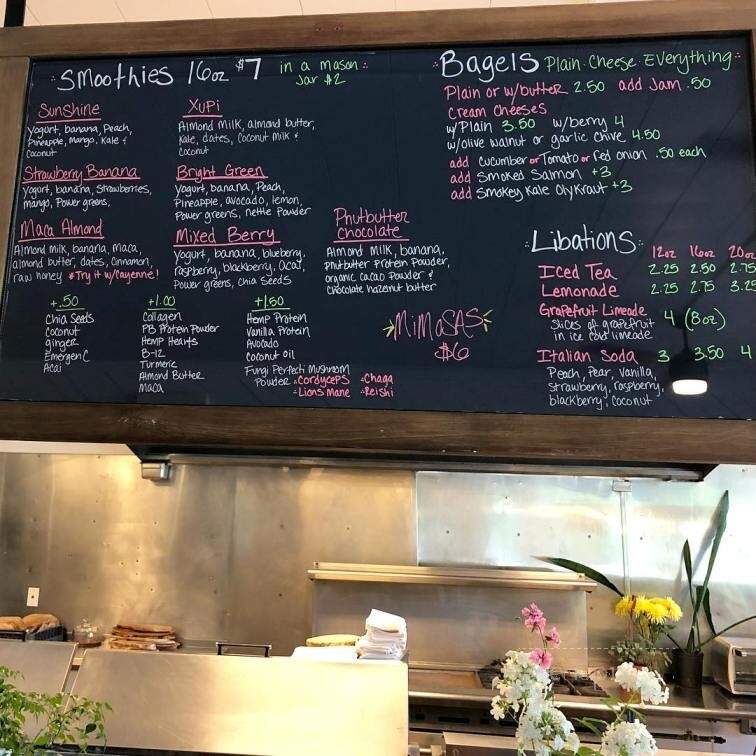 Smoothies 16oz $7 in a mason
Jar $2
Sunshine
Yogurt, banana, Peach,
Pineapple, mango, Kale &
Coconut
Xupi
Almond milk, almond butter,
Kale, dates, Coconut milk &
Coconut
Strawberry Banana
Yogurt, banana, Strawberries,
mango, Power greens,
Bright Green
Yogurt, banana, Peach,
Pineapple, avocado, lemon,
Power greens, nettle Powder
Maca Almond
Almond milk, banana, maca,
almond butter, dates, cinnamon,
raw honey *Try it w/Cayenne!
Mixed Berry
Yogurt, banana, blueberry,
raspberry, blackberry, acai,
Power greens, Chia Seeds
Phutbutter
Chocolate
Almond milk, banana,
Phutbutter Protein Powder,
organic cacao Powder &
Chocolate hazelnut butter
+.50
Chia Seeds
Coconut
ginger
EmergenC
Acai
+1.00
Collagen
PB Protein Powder
Hemp Hearts
B-12
Turmeric
Almond Butter
Maca
+1.50
Hemp Protein
Vanilla Protein
Avocado
Coconut oil
Fungi Perfecti Mushroom
Powder Cordyceps Chaga
Lions Mane Reishi
Mimosas
$6
Bagels Plain · Cheese · Everything
Plain or w/butter 2.50 add Jam .50
Cream Cheeses
w/Plain 3.50 w/berry 4
w/olive walnut or garlic chive 4.50
add Cucumber or Tomato or red onion .50 each
add Smoked Salmon +3
add Smokey Kale OlyKraut +3
Libations
12oz 16oz 20oz
Iced Tea 2.25 2.50 2.75
Lemonade 2.25 2.75 3.25
Grapefruit Limeade 4 (8oz)
Slices of grapefruit
in ice cold limeade
Italian Soda 3 3.50 4
Peach, Pear, Vanilla,
Strawberry, raspberry,
blackberry, Coconut